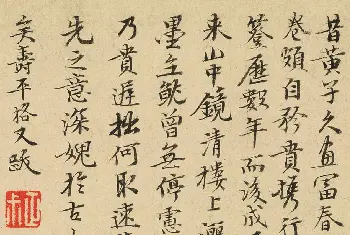 昔黄子久画富春
卷頗自矜貴携行
笈歷數年而後成
来山中鏡清樓上灑
墨
曾無停
乃貴遲拙何取速
先之意深媿於古
矣壽平格又跋